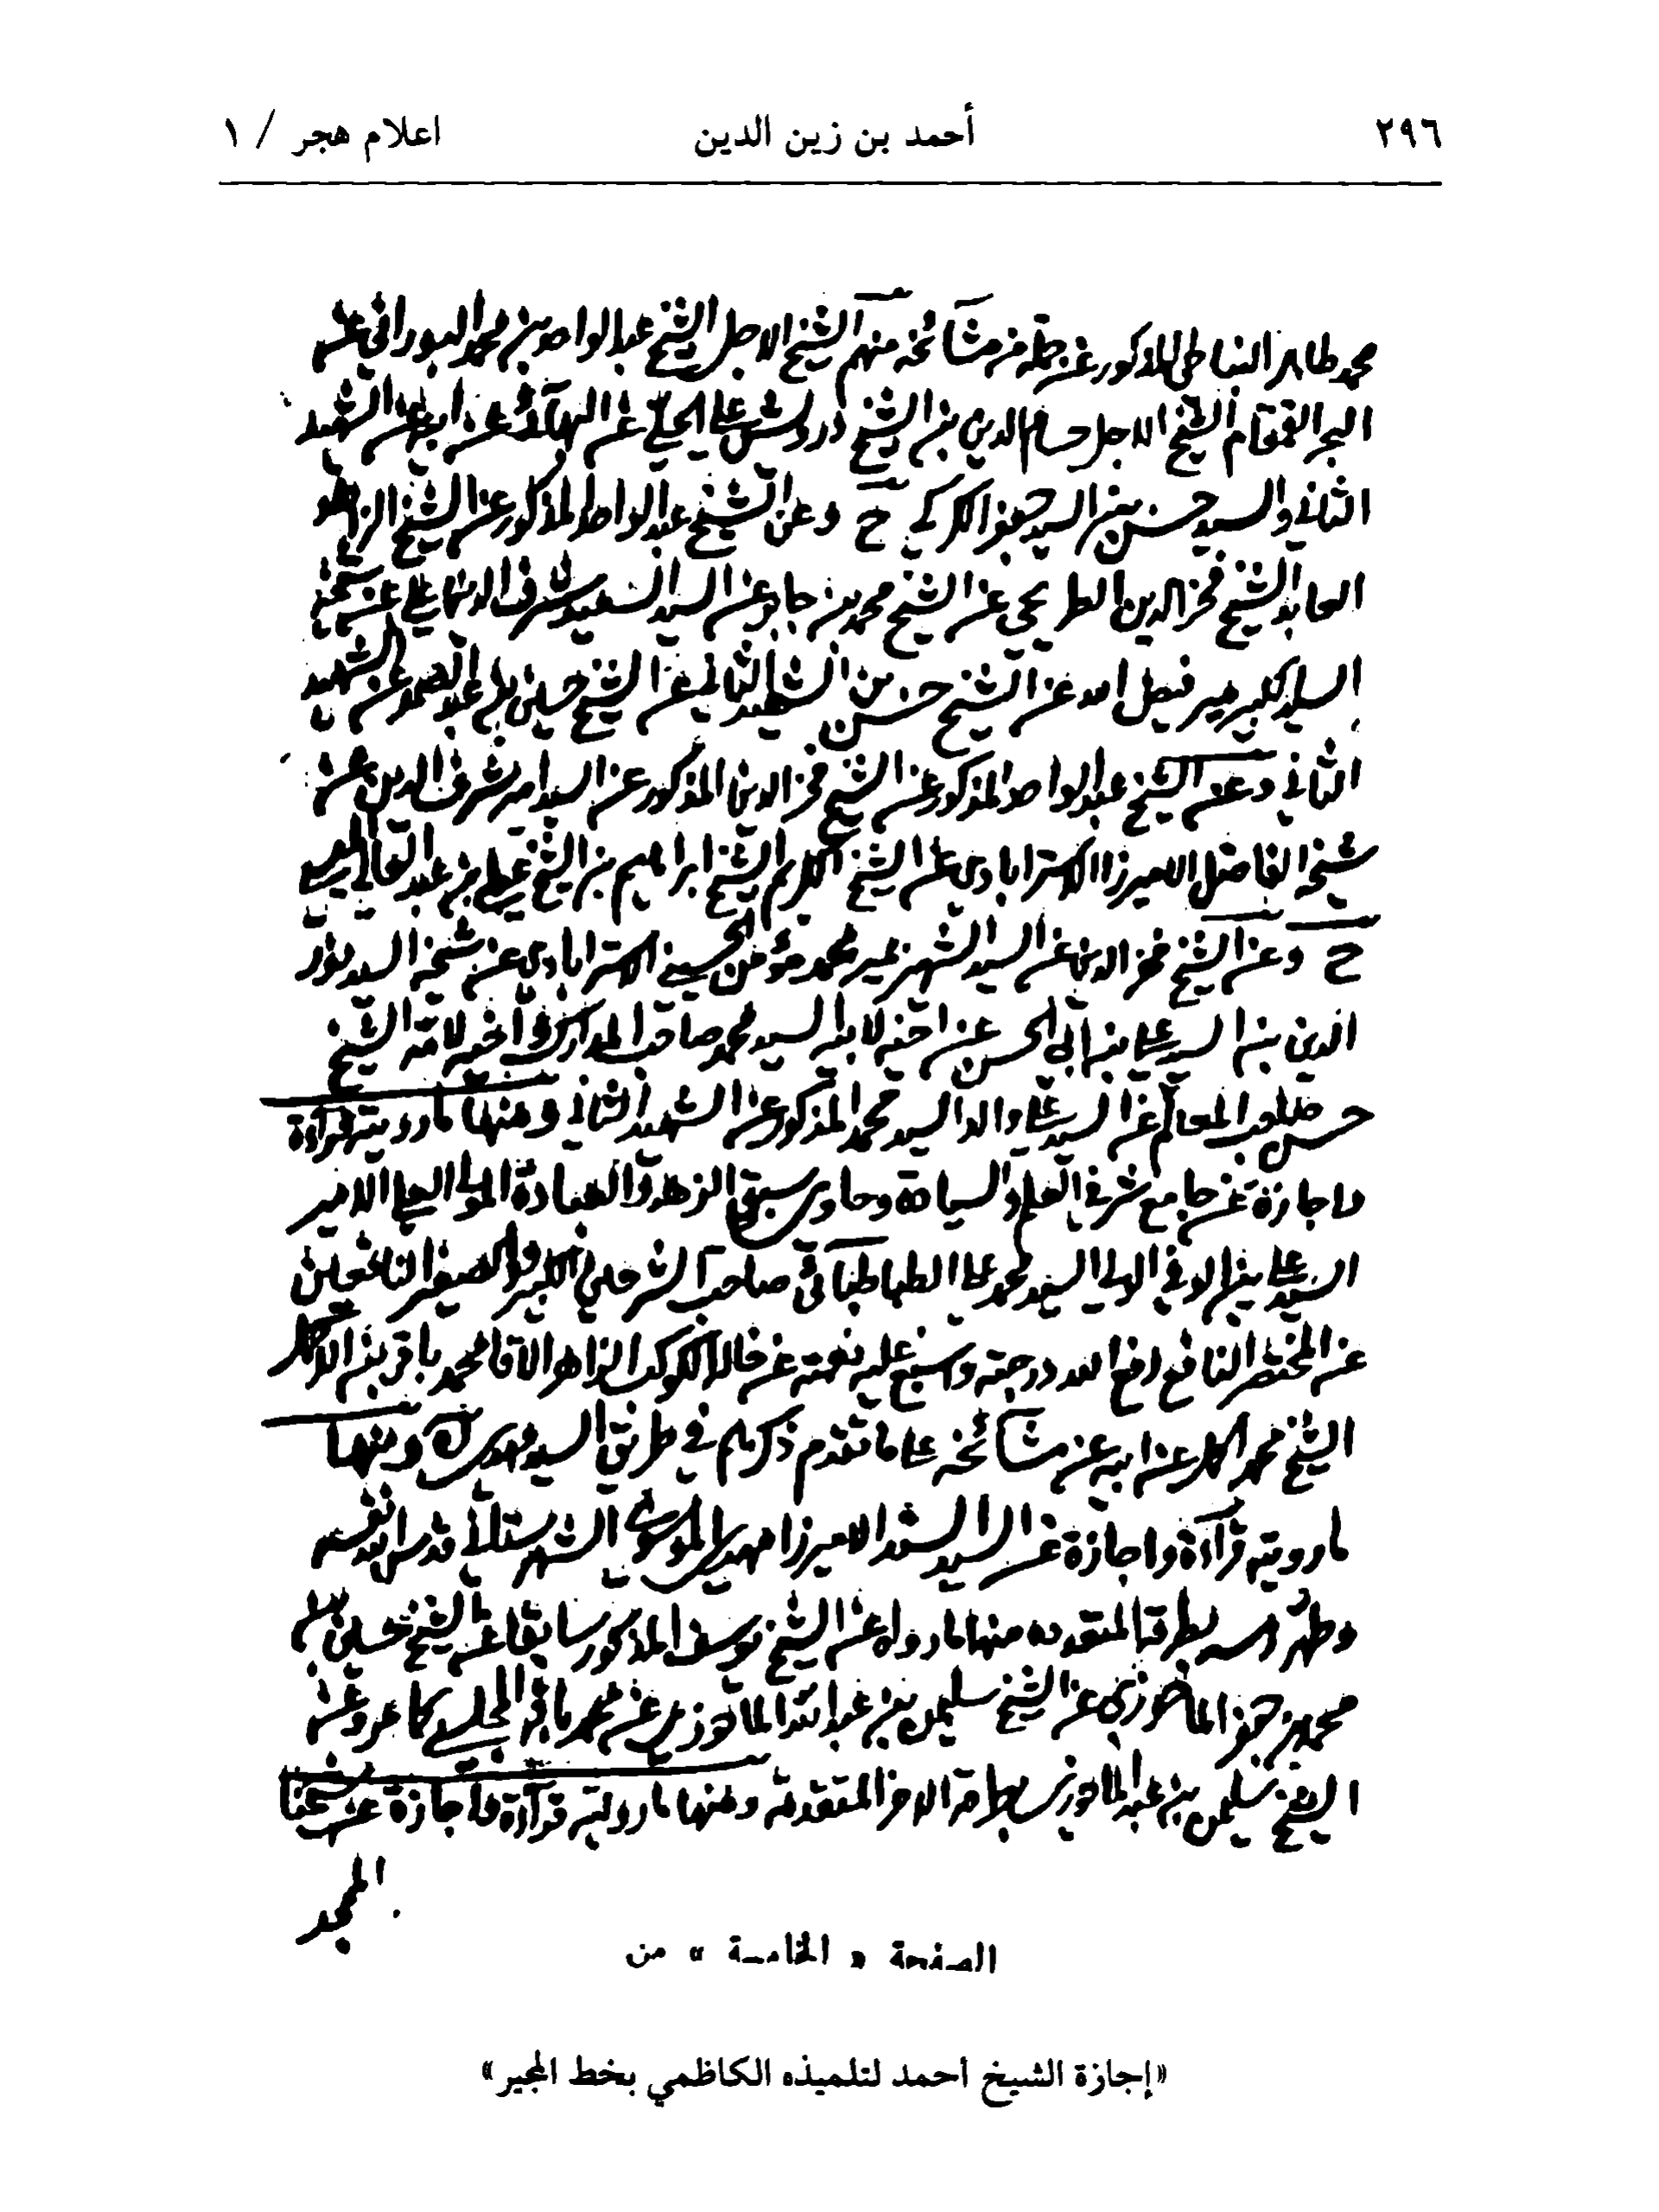 ٢٩٦ أحمد بن زين الدين اعلام هجر / ١
محمد طاهر النباطي المذكور عن جملة من مشائخه منهم الشيخ الاجل الشيخ عبد الواحد بن محمد البوراني عن
البحر القمقام الشيخ الاجل حسام الدين بن الشيخ درويش علي الحلي عن البهائي عن ابيه عن الشهيد
الثاني والسيد حسن بن السيد جعفر الكركي ح وعن الشيخ عبد الواحد المذكور عن الشيخ الزاهد
العابد الشيخ فخر الدين الطريحي عن الشيخ محمد بن جابر عن السيد السعيد شرف الدين علي عن شيخه
السيد الكبير مير فيض الله عن الشيخ حسن بن الشهيد الثاني عن الشيخ حسين بن عبد الصمد عن الشهيد
الثاني وعن الشيخ عبد الواحد المذكور عن الشيخ فخر الدين المذكور عن السيد امير شرف الدين عن
شيخه الفاضل الاميرزا الاسترابادي عن الشيخ الكريم الشيخ ابراهيم بن الشيخ علي بن عبد العالي الميسي
ح وعن الشيخ فخر الدين عن السيد الشهير بمير محمد مؤمن الحسيني الاسترابادي عن شيخه السيد نور
الدين بن السيد علي بن ابي الحسن عن اخيه لابيه السيد محمد صاحب المدارك واخيه لامه الشيخ
حسن صاحب المعالم عن السيد علي والد السيد محمد المذكور عن الشهيد الثاني ومنها ما رويته قراءة
واجازة عن جامع شرفي العلم والسيادة وحاوي سبقي الزهد والعبادة المولى العلي الامير
السيد علي بن الوفي الولي السيد محمد علي الطباطبائي صاحب الشرحين الكبير والصغير النافعين
عن المختصر النافع رفع الله درجته واسبغ عليه نعمته عن خاله الكوكب الزاهر الاقا محمد باقر بن الاكمل
الشيخ محمد اكمل عن ابيه عن مشائخه علي ما تقدم ذكرهم في طريق السيد مهدي ومنها
ما رويته قراءة واجازة عن السيد السند الاميرزا مهدي الموسوي الشهرستاني قدس الله نفسه
وطهر رمسه بطرقه المتعدده منها ما رواه عن الشيخ يوسف المذكور سابقا عن الشيخ حسين بن
محمد بن جعفر الماحوزي عن الشيخ سليمن بن عبد الله الماحوزي عن محمد باقر المجلسي كما مر وعن
الشيخ سليمن بن عبد الله الماحوزي بطرقه الاخر المتقدمة ومنها ما رويته قراءة واجازة عن شيخنا
الامجد
الصفحة « الخامسة » من
«إجازة الشيخ أحمد لتلميذه الكاظمي بخط المجيز»